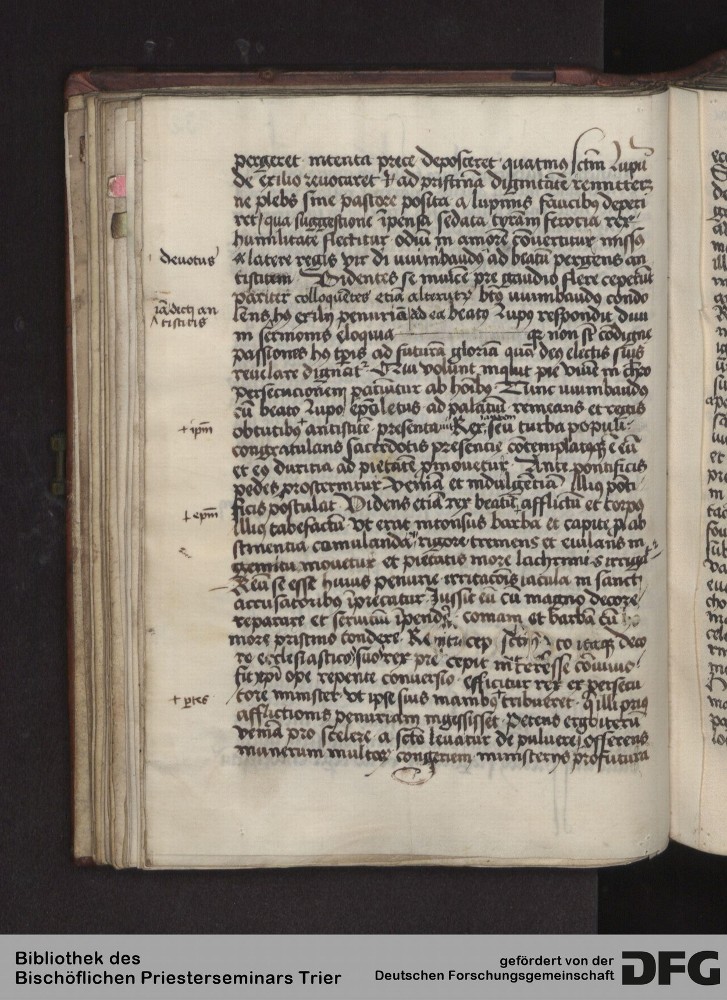 pergeret intenta prece deposceret quatinus sctm Lupū
de exilio revocaret & ad pristinā dignitatē remitteret
ne plebs sine pastore posita a lupinis faucibus deperi
ret, qua suggestione īpensa sedata tyrāni ferocia rex
humilitate flectitur odiū in amorē convertitur missus
devotus
a latere regis vir di winibaudus ad beatū pergens an
tistitem Videntes se invicē pre gaudio flere ceperūt
pariter colloquētes etiā alterutrū bto winibaudo condo
iādicti an
tistitis
lens hs exilij penuriā ad ea beatꝰ Lupꝰ respondit divi
ni sermonis eloquia qr non st cōdigne
passiones hꝰ tpis ad futurā gloriā quā deꝰ electis suis
revelare dignat Qui volunt inquit pie vivere in chro
persecucionem paciūtur ab hoibꝰ Tunc winibaudus
cū beato Lupo epo letus ad palatiū remeans et regis
+ ipm
obtutibꝰ antistitē presentavit Rex seu turba populi
congratulans sacerdotis presencie cōtemplatꝰ ē eū
et eꝰ duritia ad pietatē pmovetur Ante pontificis
pedes prosternitur veniā et indulgētiā illiꝰ pōti
ficis postulat Videns etiā rex beatū afflictū et corpꝰ
+ epm
illiꝰ tabefactū vt erat intonsus barba et capite p ab
stinentia
rigore tremens et eiulans in
gemitu movetur et pietatis more lachrimis irrigat
Reū se esse huius penurie
iacula in sancti
accusatoribꝰ īprecatur Jussit eū cū magno decore
reparare et servitiū īpendi comam et barbā eiꝰ
more pristino tondere
deco
re ecclesiastico suo rex pre cepit interesse cōvivio
fit xpi ope repente conversio efficitur rex ex persecu
+ ptes
tore minister vt ipse suis manibꝰ tribueret q illi priꝰ
afflictionis penuriam ingessisset Petens
veniā pro scelere a scto levatur de pulvere offerens
munerum multoꝝ congeriem ministerijs profutura
Bibliothek des
Bischöflichen Priesterseminars Trier
gefördert von der
Deutschen Forschungsgemeinschaft
DFG